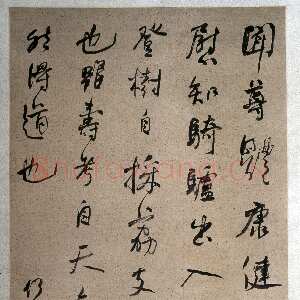 聞尊體康健
慰知騎驢出入
登樹自採荔支
也雖壽考自天
得道也